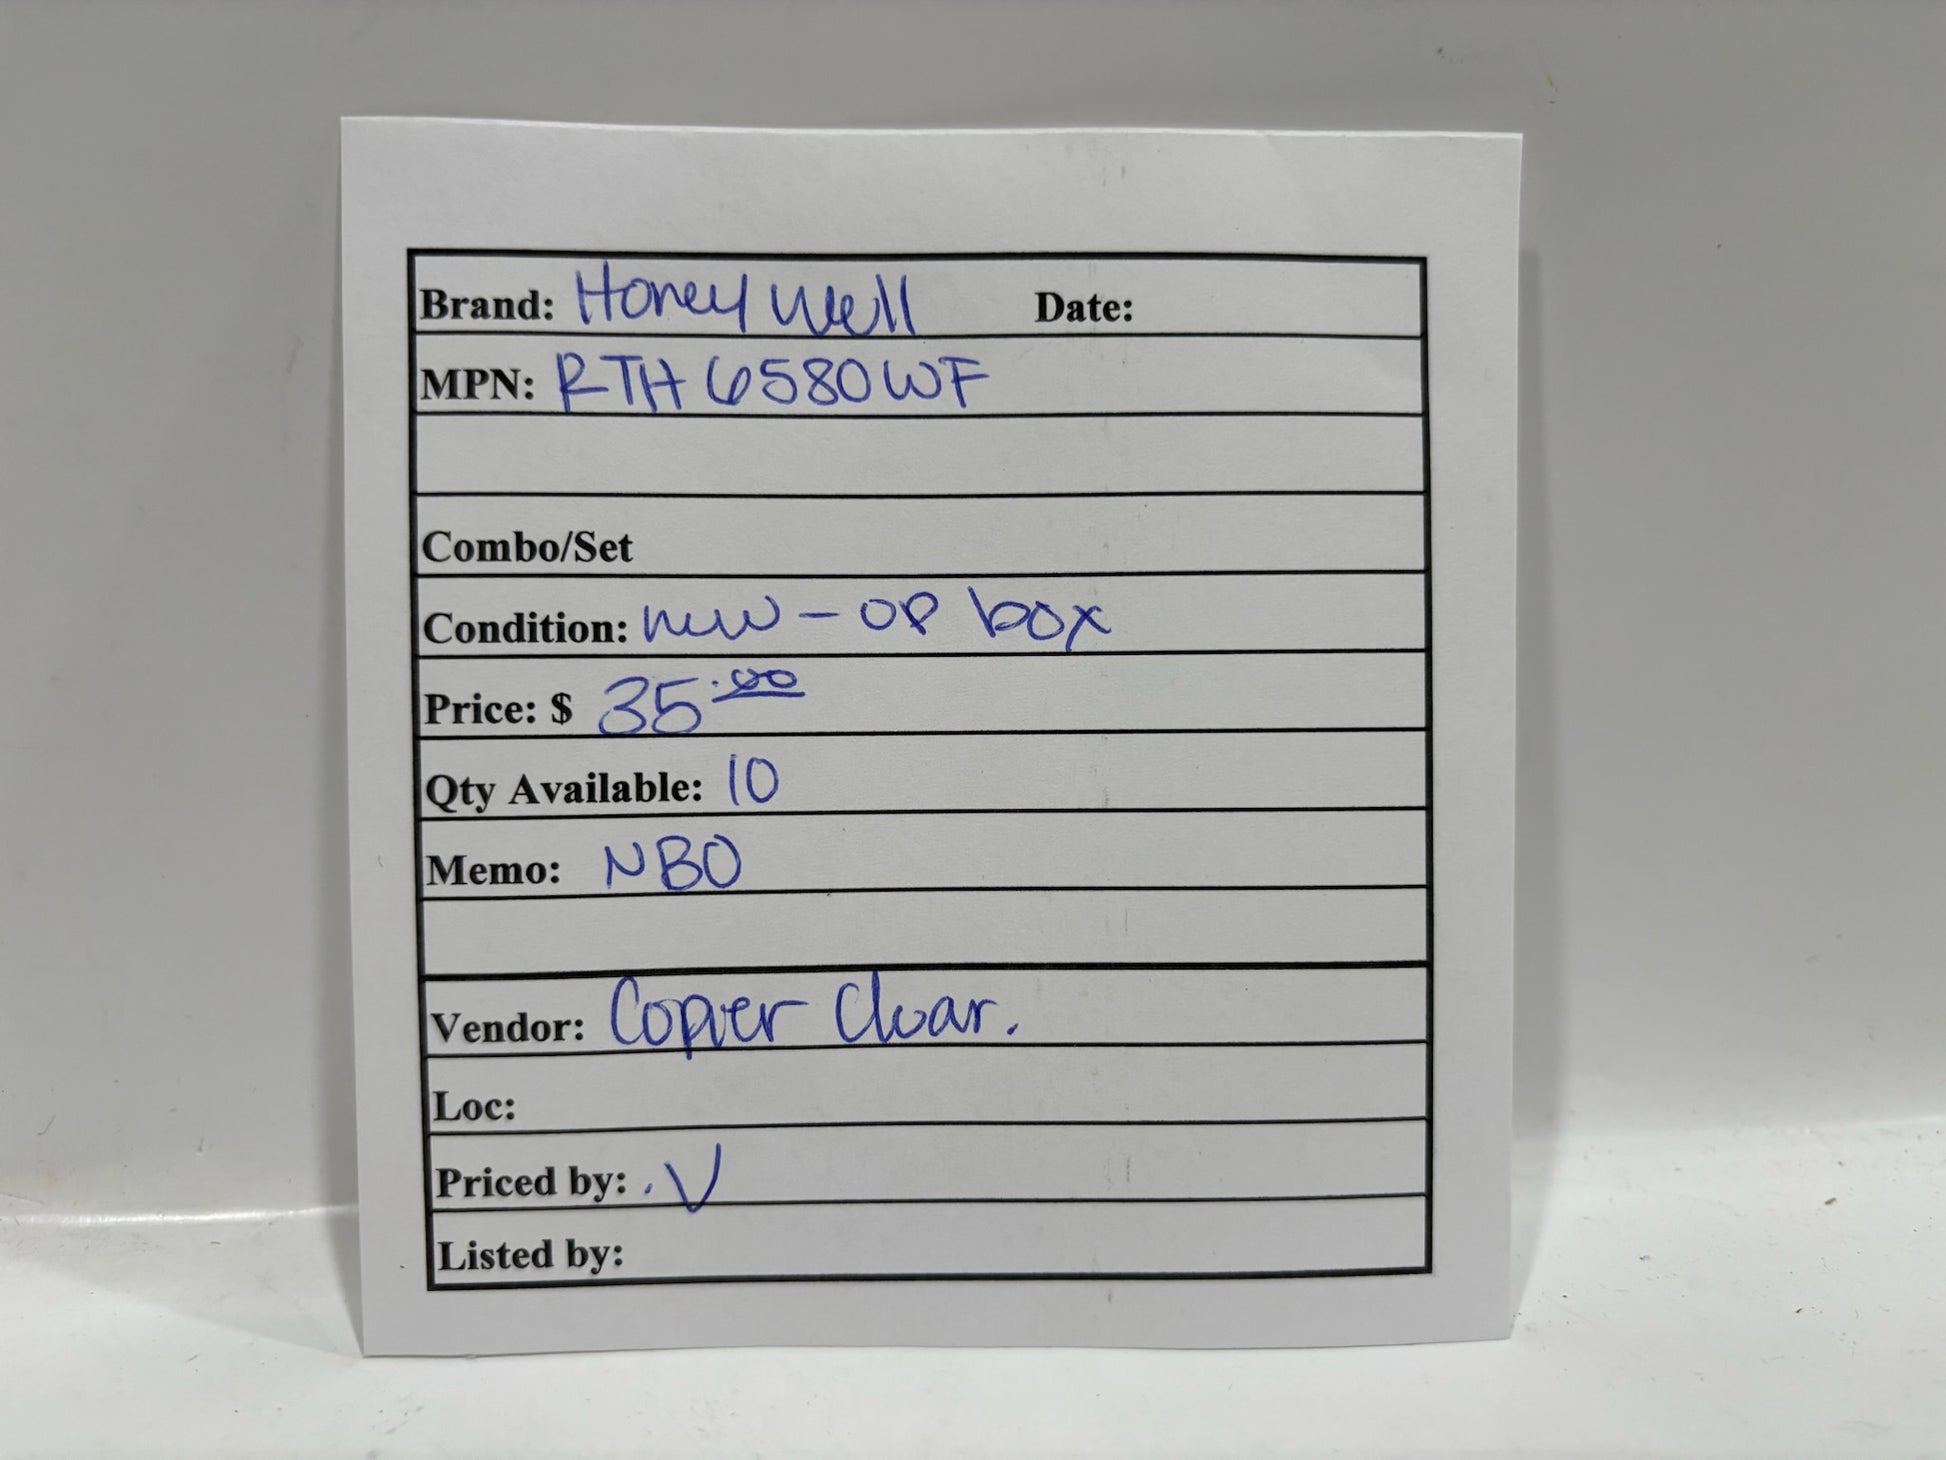 Brand: Honey Well Date:
MPN: RTH6580WF
Combo/Set
Condition: new - op box
Price: $ 35.00
Qty Available: 10
Memo: NBO
Vendor: Copier Clear.
Loc:
Priced by: . V
Listed by: